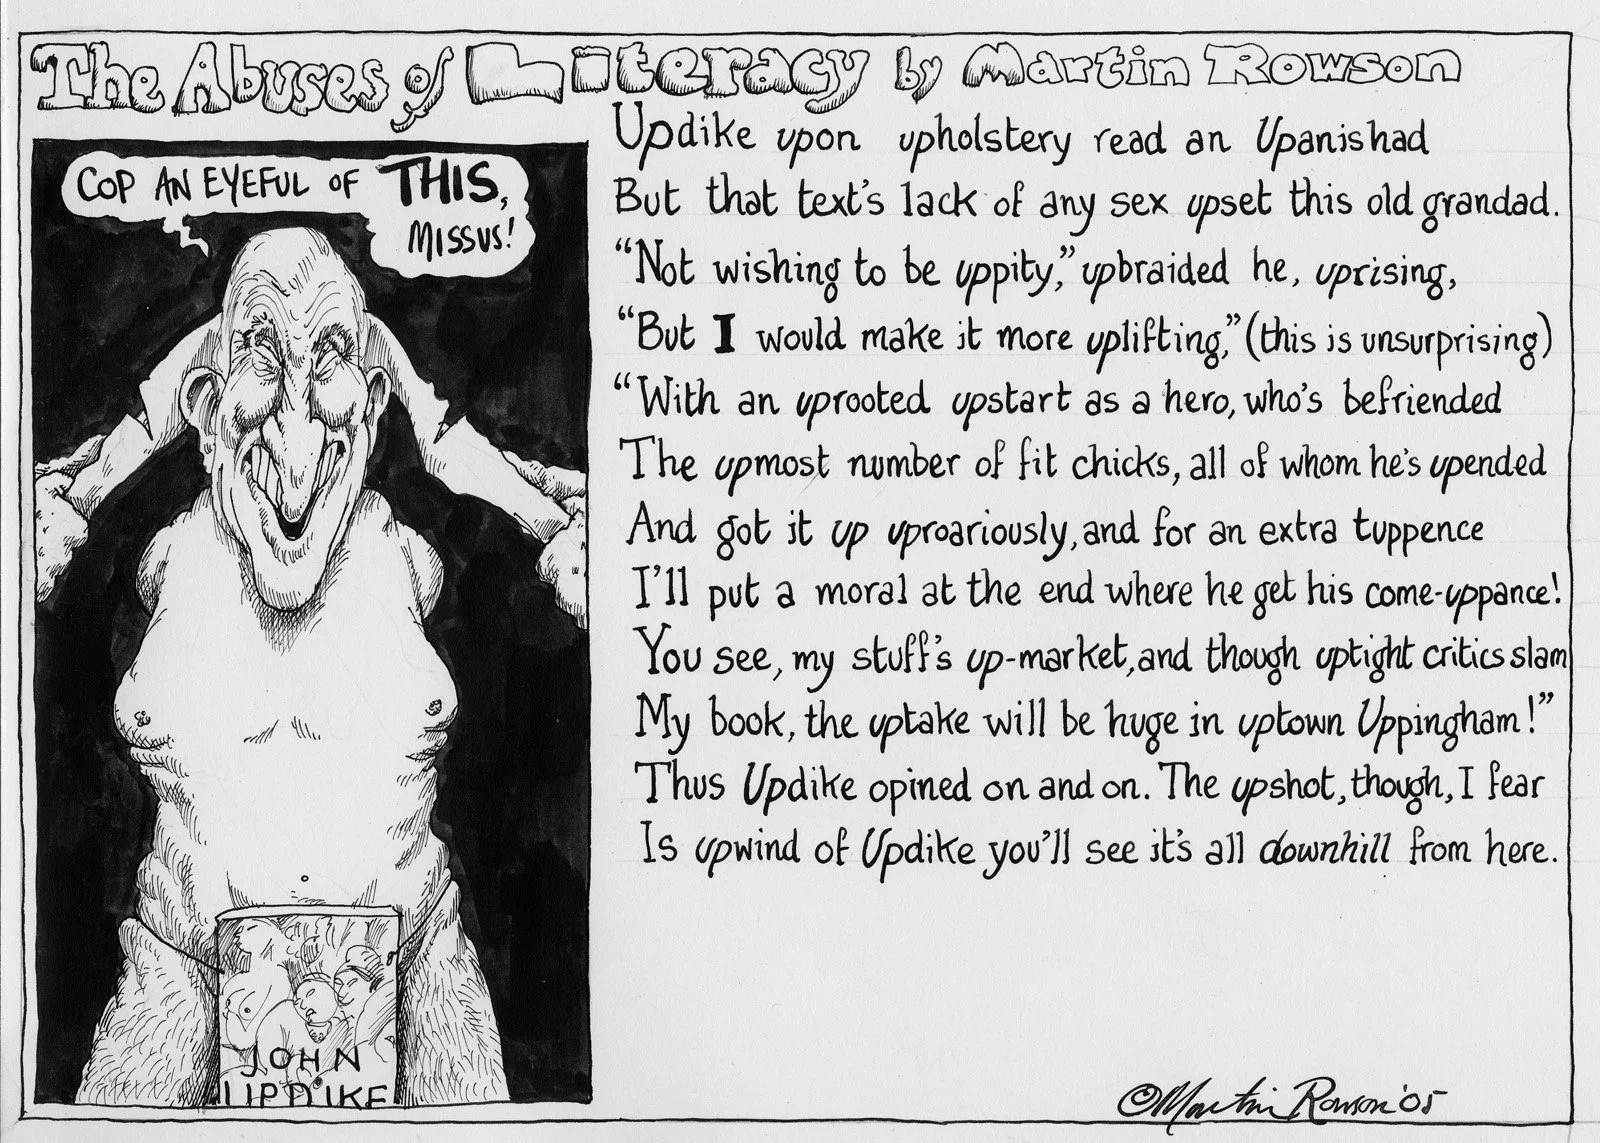 The Abuses of Literacy by Martin Rowson
COP AN EYEFUL OF THIS,
MISSUS!
Updike upon upholstery read an Upanishad
But that text's lack of any sex upset this old grandad.
"Not wishing to be uppity," upbraided he, uprising,
"But I would make it more uplifting," (this is unsurprising)
"With an uprooted upstart as a hero, who's befriended
The upmost number of fit chicks, all of whom he's upended
And got it up uproariously, and for an extra tuppence
I'll put a moral at the end where he get his come-uppance!
You see, my stuff's up-market, and though uptight critics slam
My book, the uptake will be huge in uptown Uppingham!"
Thus Updike opined on and on. The upshot, though, I fear
Is upwind of Updike you'll see it's all downhill from here.
JOHN
UPDIKE
©Martin Rowson '05